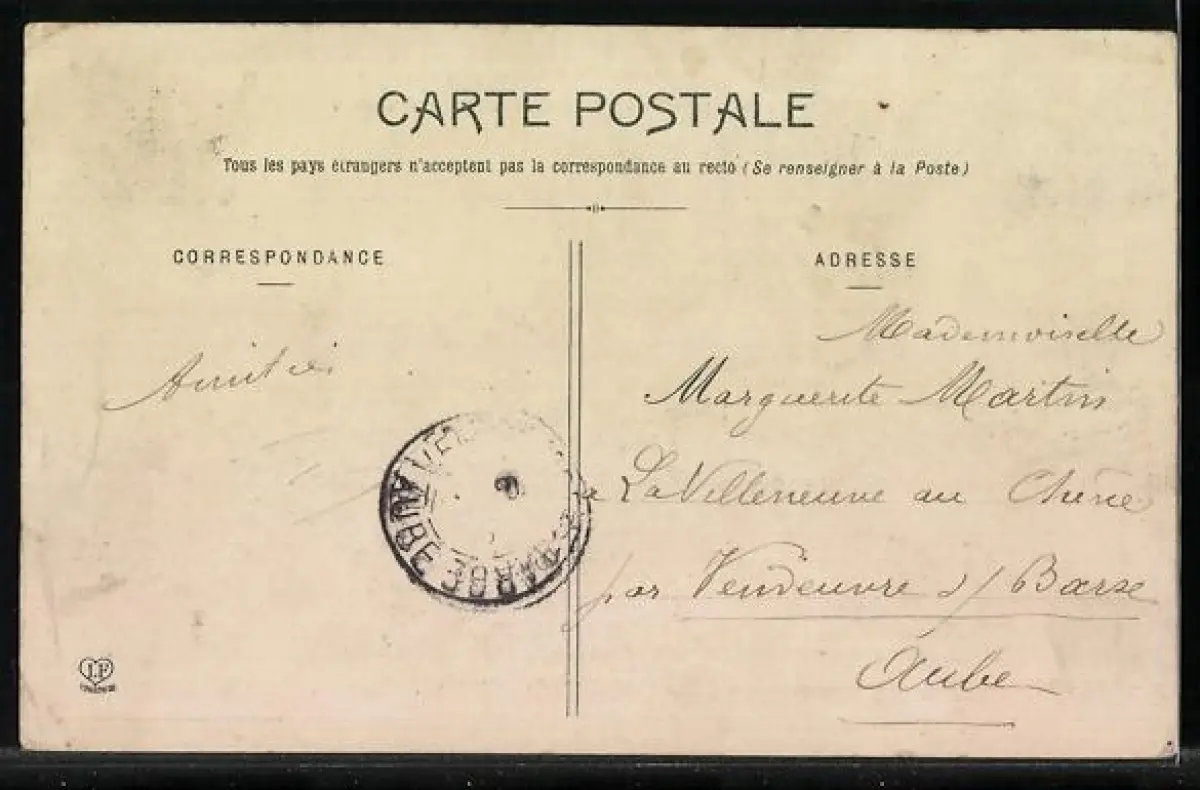 CARTE POSTALE
Tous les pays étrangers n'acceptent pas la correspondance au recto (Se renseigner à la Poste)
CORRESPONDANCE
ADRESSE
Mademoiselle
Amitiés
Marguerite Martin
à La Villeneuve au Chêne
par Vendeuvre s/ Barse
Aube
AUBE
BARSE